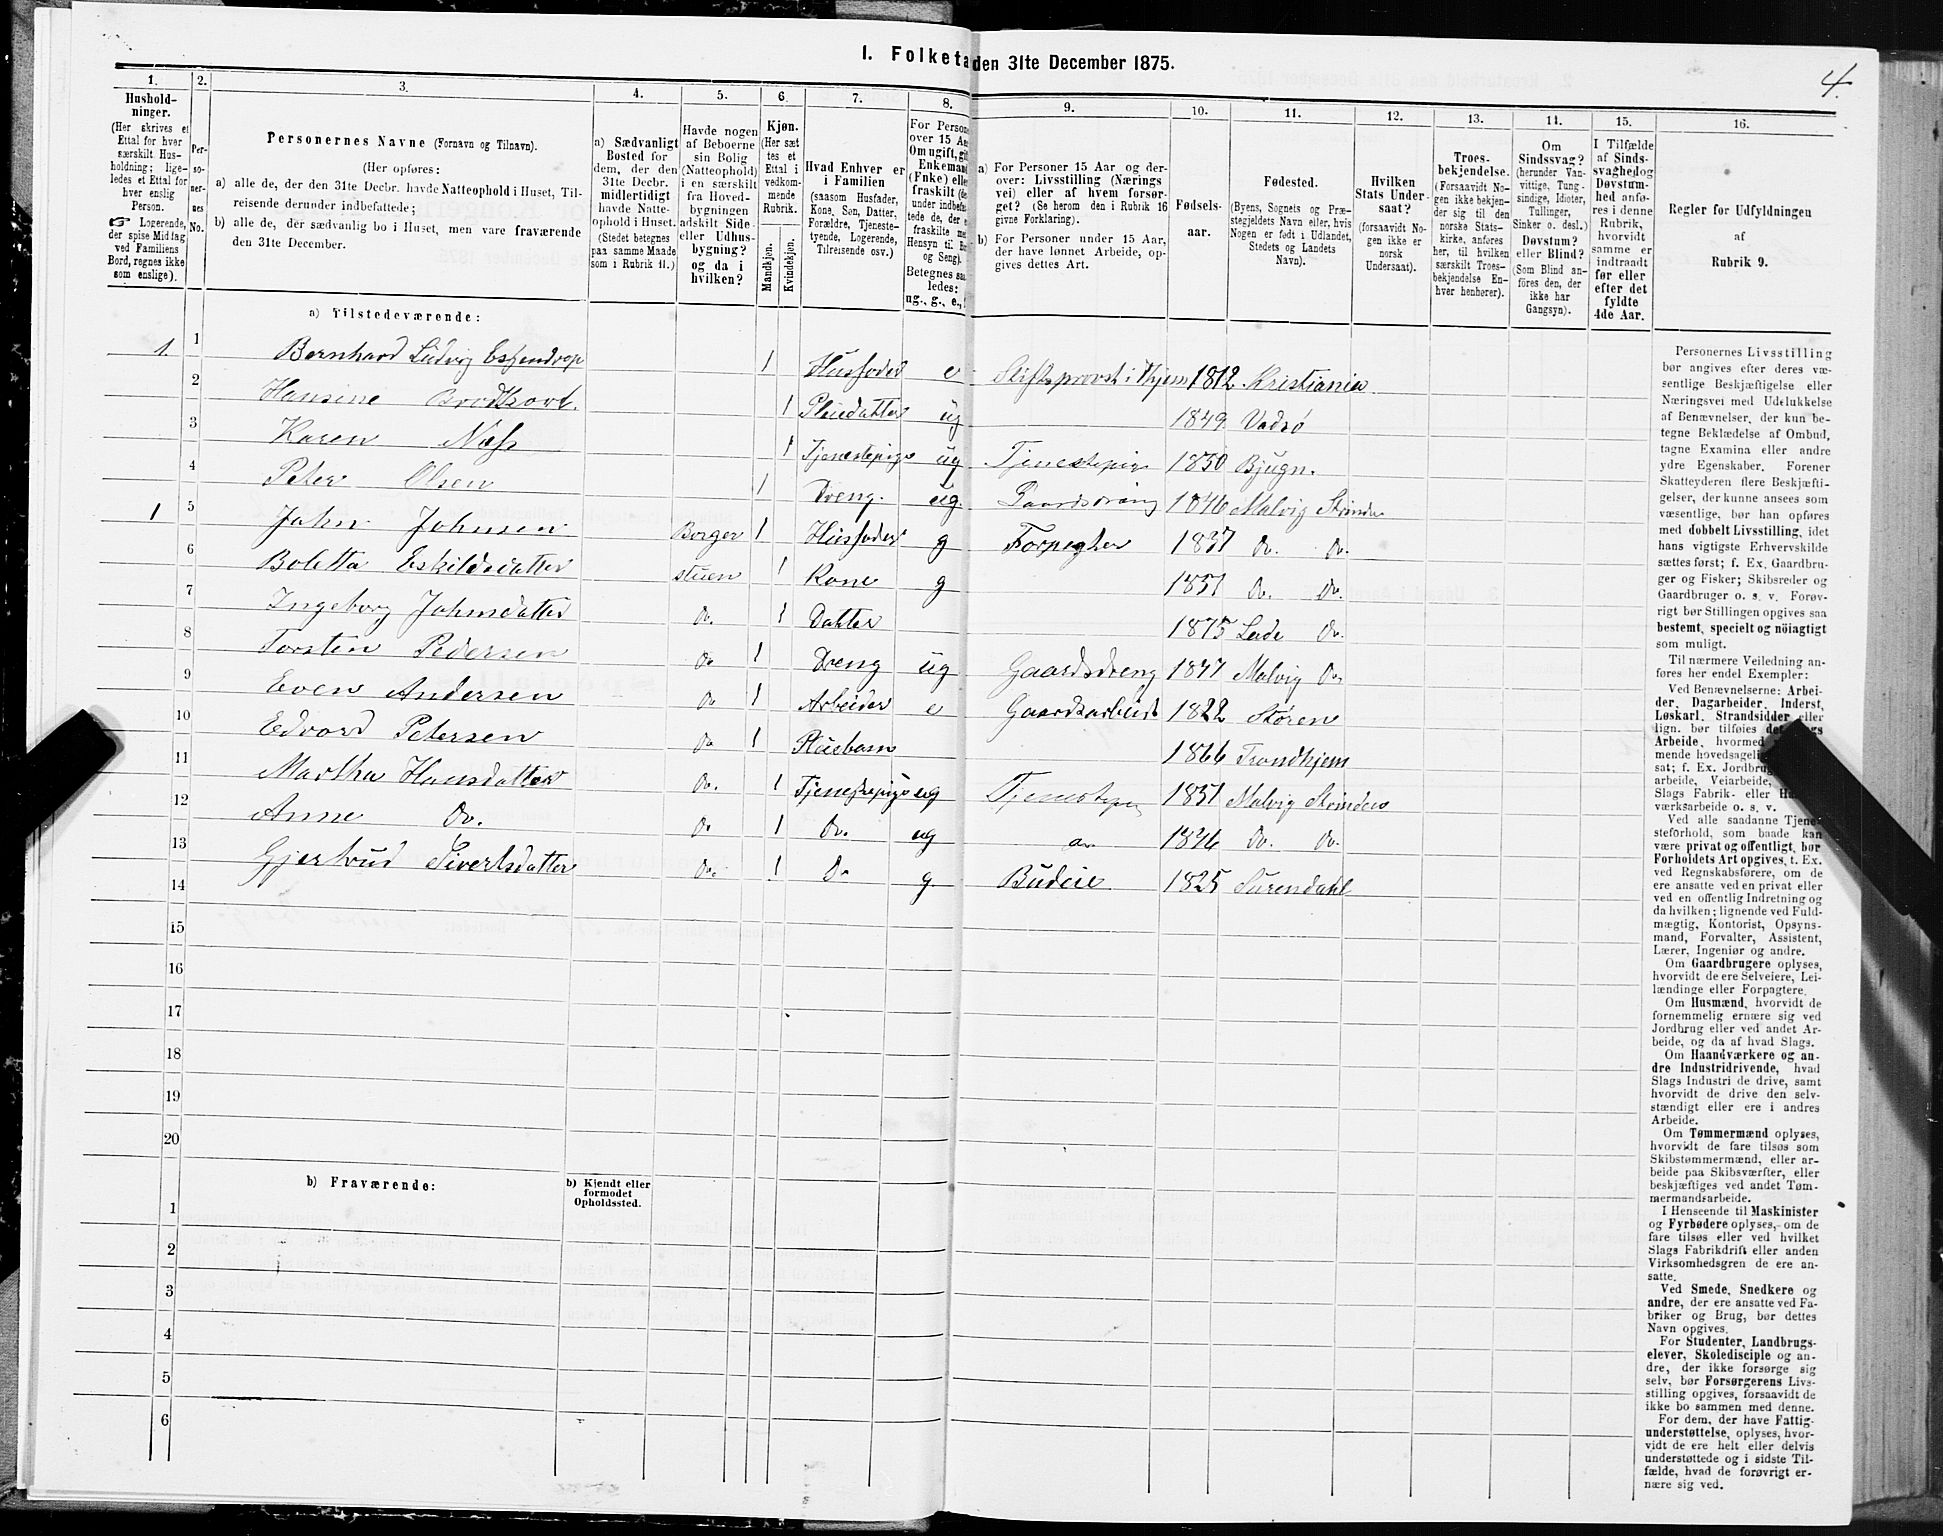 I. Folketa den 31te December 1875.
4.
1.
Hushold-
ninger.
(Her skrives et
Ettal for hver
særskilt Hus-
holdning; lige-
ledes et Ettal for
hver enslig
Person.
☞ Logerende,
der spise Middag
ved Familiens
Bord, regnes ikke
som enslige).
2.
Per-
so-
ner-
nes
No.
3.
Personernes Navne (Fornavn og Tilnavn).
(Her opføres:
a) alle de, der den 31te Decbr. havde Natteophold i Huset, Til-
reisende derunder indbefattede;
b) alle de, der sædvanlig bo i Huset, men vare fraværende
den 31te December.
4.
a) Sædvanligt
Bosted for
dem, der den
31te Decbr.
midlertidigt
havde Natte-
ophold i Huset.
(Stedet betegnes
paa samme Maade
som i Rubrik 11.)
5.
Havde nogen
af Beboerne
sin Bolig
(Natteophold)
i en særskilt
fra Hoved-
bygningen
adskilt Side-
eller Udhus-
bygning?
og da i
hvilken?
6.
Kjøn.
(Her sæt
tes et
Ettal i
vedkom-
mende
Rubrik.
Mandkjøn.
Kvindekjøn.
7.
Hvad Enhver er
i Familien
(saasom Husfader,
Kone, Søn, Datter,
Forældre, Tjeneste-
tyende, Logerende,
Tilreisende osv.)
8.
For Person
over 15 Aa
Om ugift, gif
Enkemand
(Fnke) elle
fraskilt (de
under indbefat
tede de, der e
fraskilte me
Hensyn til Bo
og Seng).
Betegnes saa
ledes:
ug., g., e.,
9.
a) For Personer 15 Aar og der-
over: Livsstilling (Nærings
vei) eller af hvem forsør-
get? (Se herom den i Rubrik 16
givne Forklaring).
b) For Personer under 15 Aar,
der have lønnet Arbeide, op-
gives dettes Art.
10.
Fødsels-
aar.
11.
Fødested.
(Byens, Sognets og Præ-
stegjeldets Navn eller, hvis
Nogen er født i Udlandet,
Stedets og Landets
Navn).
12.
Hvilken
Stats Under-
saat?
(forsaavidt No-
gen ikke er
norsk
Undersaat).
13.
Troes-
bekjendelse.
(Forsaavidt No-
gen ikke bekjen-
der sig til den
norske Stats-
kirke, anføres
her, til hvilken
særskilt Troes-
bekjendelse En-
hver henhører).
14.
Om
Sindssvag?
(herunder Van-
vittige, Tung-
sindige, Idioter,
Tullinger,
Sinker o. desl.)
Døvstum?
eller Blind?
(Som Blind an-
føres den, der
ikke har
Gangsyn).
15.
I Tilfælde
af Sinds-
svaghed og
Døvstum-
hed anfø-
res i denne
Rubrik,
hvorvidt
samme er
indtraadt
før eller
efter det
fyldte
4de Aar.
16.
Regler for Udfyldningen
af
Rubrik 9.
a) Tilstedeværende:
1 1 Bernhard Ludvig Essendrop 1 Husfader e Stiftsprovst i Thjem 1812 Kristiania
2 Hansine Brodtkorb. 1 Pleiedatter ug 1849 Vadsø
3 Karen Næss 1 Tjenestepige ug Tjenestepige 1850 Bjugn.
4 Peter Olsen 1 Dreng. ug. Gaardsdreng 1846 Malvig Strinden
1 5 John Johnsen Borger 1 Husfader g Forpagter 1837 Do. Do.
6 Boletta Eskildsdatter stuen 1 Kone g 1851 Do. Do.
7 Ingeborg Johnsdatter Do. 1 Datter 1875 Lade Do.
8 Torsten Pedersen Do 1 Dreng ug Gaardsdreng 1847 Malvig Do
9 Even Andersen Do 1 Arbeider e Gaardsarbeide 1822 Støren
10 Edvard Petersen Do 1 Pleiebarn 1866 Trondhjem
11 Martha Hansdatter Do. 1 Tjenestepige ug Tjenestepige 1851 Malvig Strinden
12 Anne Do. Do 1 Do. ug Do 1846 Do. Do.
13 Gjertrud Sivertsdatter Do. 1 Do g. Budeie 1825 Surendahl
14
15
16
17
18
19
20
b) Fraværende:
b) Kjendt eller
formodet
Opholdssted.
1
2
3
4
5
6
Personernes Livsstilling
bør angives efter deres væ-
sentlige Beskjæftigelse eller
Næringsvei med Udelukkelse
af Benævnelser, der kun be-
tegne Beklædelse af Ombud,
tagne Examina eller andre
ydre Egenskaber. Forener
Skatteyderen flere Beskjæfti-
gelser, der kunne ansees som
væsentlige, bør han opføres
med dobbelt Livsstilling, idet
hans vigtigste Erhvervskilde
sættes først; f. Ex. Gaardbru-
ger og Fisker; Skibsreder og
Gaardbruger o. s. v. Forøv-
rigt bør Stillingen opgives saa
bestemt, specielt og nöiagtigt
som muligt.
Til nærmere Veiledning an-
føres her endel Exempler:
Ved Benævnelserne: Arbei-
der, Dagarbeider, Inderst,
Løskarl, Strandsidder eller
lign. bør tilføies det Slags
Arbeide, hvormed
mende hovedsagelig
sat; f. Ex. Jordbrug
arbeide, Veiarbeide,
Slags Fabrik- eller Ha
værksarbeide o. s. v.
Ved alle saadanne Tjene
steforhold, som baade kan
være privat og offentligt, bør
Forholdets Art opgives, t. Ex.
ved Regnskabsførere, om de
ere ansatte ved en privat eller
ved en offentlig Indretning og
da hvilken; lignende ved Fuld-
mægtig, Kontorist, Opsyns-
mand, Forvalter, Assistent,
Lærer, Ingeniør og andre.
Om Gaardbrugere oplyses,
hvorvidt de ere Selveiere, Lei-
lændinge eller Forpagtere.
Om Husmænd, hvorvidt de
fornemmelig ernære sig ved
Jordbrug eller ved andet Ar-
beide, og da af hvad Slags.
Om Haandværkere og an-
dre Industridrivende, hvad
Slags Industri de drive, samt
hvorvidt de drive den selv-
stændigt eller ere i andres
Arbeide.
Om Tømmermænd oplyses,
hvorvidt de fare tilsøs som
Skibstømmermænd, eller ar-
beide paa Skibsværfter, eller
beskjæftiges ved andet Tøm-
mermandsarbeide.
I Henseende til Maskinister
og Fyrbødere oplyses, om de
fare tilsøs eller ved hvilket
Slags Fabrikdrift eller anden
Virksomhedsgren de ere an-
satte.
Ved Smede, Snedkere og
andre, der ere ansatte ved Fa-
briker og Brug, bør dettes
Navn opgives.
For Studenter, Landbrugs-
elever, Skoledisciple og an-
dre, der ikke forsørge sig
selv, bør Forsørgerens Livs-
stilling opgives, forsaavidt de
ikke bo sammen med denne.
For dem, der have Fattig-
understøttelse, oplyses, hvor-
vidt de ere helt eller delvis
understøttede og i sidste Til-
fælde, hvad de forøvrigt er-
nære sig ved.